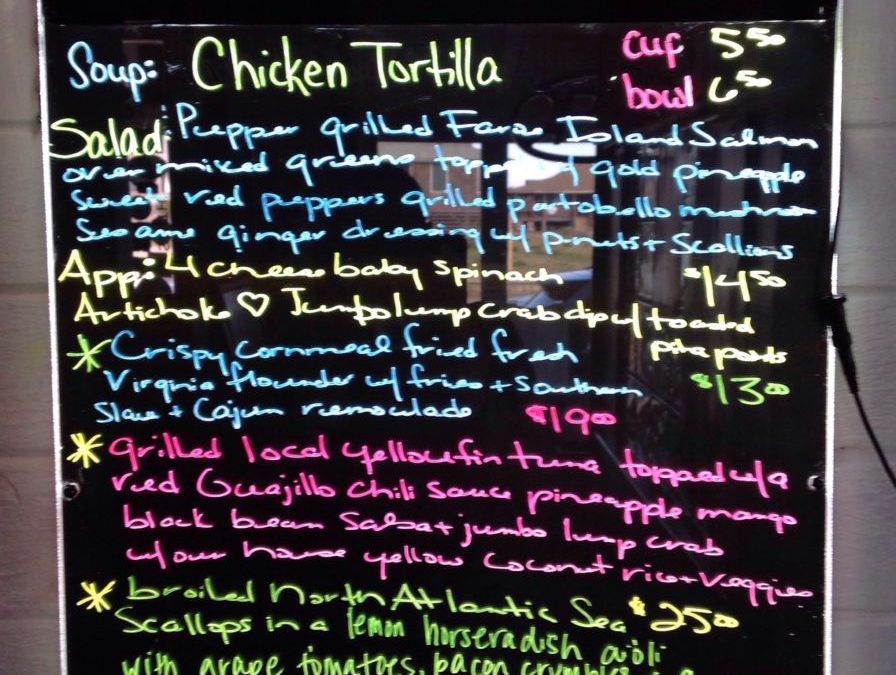 Soup: Chicken Tortilla cup 5.50
bowl 6.50
Salad: Pepper grilled Faroe Island Salmon
over mixed greens topped w/ gold pineapple
sweet red peppers grilled portobello mushroom
Sesame ginger dressing w/ p-nuts + Scallions
$14.50
App: 4 cheese baby spinach
Artichoke ♡ Jumbo lump crab dip w/ toasted
pita points
$13.00
* Crispy cornmeal fried fresh
Virginia flounder w/ fries + Southern
Slaw + Cajun remoulade $19.00
* grilled local yellowfin tuna topped w/ a
red Guajillo chili sauce pineapple mango
black bean Salsa + jumbo lump crab
w/ our house yellow coconut rice + Veggies
$25.00
* broiled North Atlantic Sea
Scallops in a lemon horseradish aioli
with grape tomatoes, bacon crumbles